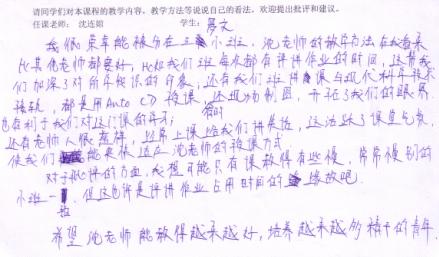 请同学们对本课程的教学内容、教学方法等说说自己的看法，欢迎提出批评和建议。
任课老师： 沈连婠 学生：
我很荣幸能被分在三小班，沈老师的教学方法在我看来
比其他老师都要好，比如我们班每次都有评讲作业的时间，这帮我
们加深了对所学知识的印象；还有我们班讲课与现代科学技术
接轨，都是用Auto CD 授课，还现场制图，开拓了我们的眼界，
也有利于我们对这门课的学习；
还有老师人很慈祥，经常上课给我们讲笑话，这活跃了课堂气氛，
使我们能很快适应沈老师的授课方式
对于批评的方面，我想可能只有课教得有些慢，常常慢别的
小班一 但这也许是评讲作业占用时间的缘故吧
希望沈老师能教得越来越好，培养越来越多精干的青年